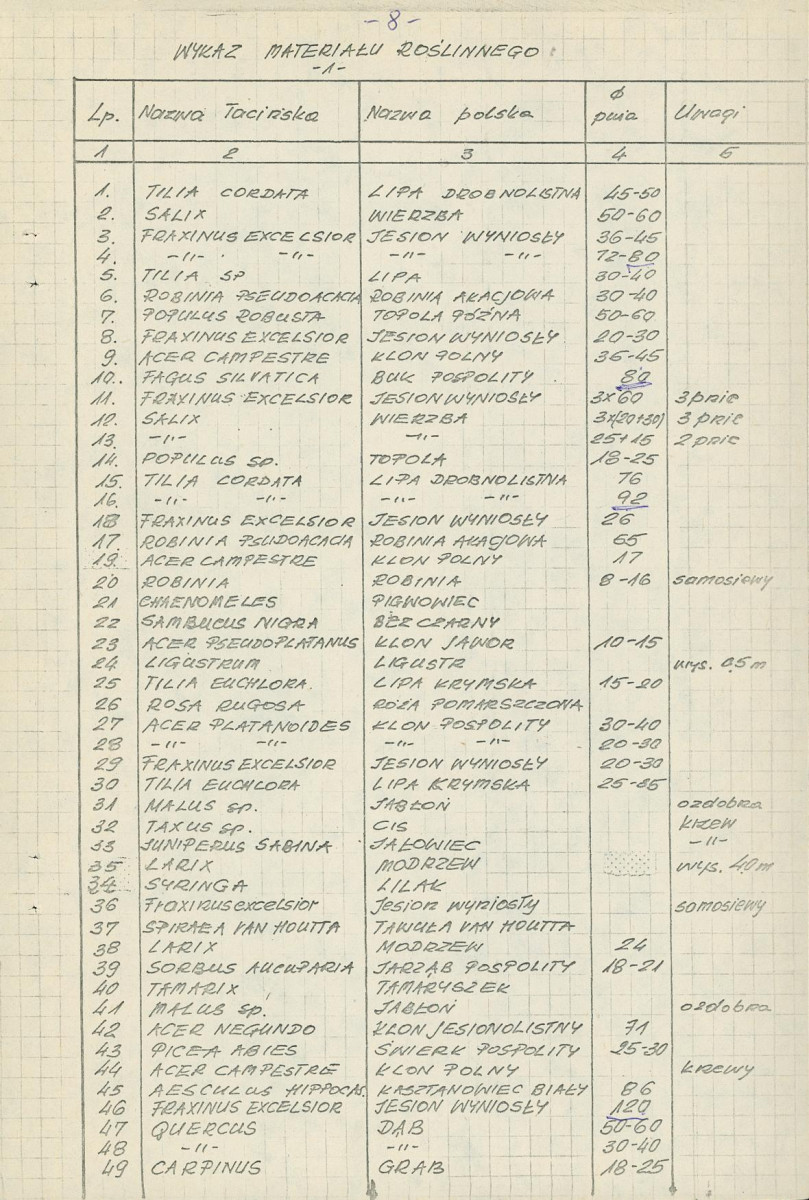 -8-
WYKAZ MATERIAŁU ROŚLINNEGO
-1-
Lp. Nazwa Łacińska Nazwa polska ϕ pnia Uwagi
1 2 3 4 5
1. TILIA CORDATA LIPA DROBNOLISTNA 45-50
2. SALIX WIERZBA 50-60
3. FRAXINUS EXCELSIOR JESION WYNIOSŁY 36-45
4. -"- -"- -"- -"- 72-80
5. TILIA SP LIPA 30-40
6. ROBINIA PSEUDOACACIA ROBINIA AKACJOWA 30-40
7. POPULUS ROBUSTA TOPOLA PÓŹNA 50-60
8. FRAXINUS EXCELSIOR JESION WYNIOSŁY 20-30
9. ACER CAMPESTRE KLON POLNY 36-45
10. FAGUS SILVATICA BUK POSPOLITY 80
11. FRAXINUS EXCELSIOR JESION WYNIOSŁY 3x60 3 pnie
12. SALIX WIERZBA 3x(20+30) 3 pnie
13. -"- -"- 25+15 2 pnie
14. POPULUS sp. TOPOLA 18-25
15. TILIA CORDATA LIPA DROBNOLISTNA 76
16. -"- -"- -"- -"- 92
18 FRAXINUS EXCELSIOR JESION WYNIOSŁY 26
17 ROBINIA PSUDOACACIA ROBINIA AKACJOWA 65
19. ACER CAMPESTRE KLON POLNY 17
20 ROBINIA ROBINIA 8-16 samosiewy
21 CHAENOMELES PIGWOWIEC
22 SAMBUCUS NIGRA BEZ CZARNY
23 ACER PSEUDOPLATANUS KLON JAWOR 10-15
24 LIGUSTRUM LIGUSTR wys. 0,5 m
25 TILIA EUCHLORA. LIPA KRYMSKA 15-20
26 ROSA RUGOSA RÓŻA POMARSZCZONA
27 ACER PLATANOIDES KLON POSPOLITY 30-40
28 -"- -"- -"- -"- 20-30
29 FRAXINUS EXCELSIOR JESION WYNIOSŁY 20-30
30 TILIA EUCHLORA LIPA KRYMSKA 25-35
31 MALUS sp. JABŁOŃ ozdobna
32 TAXUS sp. CIS krzew
33 JUNIPERUS SABINA JAŁOWIEC -"-
35 LARIX MODRZEW wys. 4,0 m
34 SYRINGA LILAK
36 Fraxinus excelsior Jesion wyniosły samosiewy
37 SPIRAEA VAN HOUTTA TAWUŁA VAN HOUTTA
38 LARIX MODRZEW 24
39 SORBUS AUCUPARIA JARZĄB POSPOLITY 18-21
40 TAMARIX TAMARYSZEK
41 MALUS sp. JABŁOŃ ozdobna
42 ACER NEGUNDO KLON JESIONOLISTNY 71
43 PICEA ABIES ŚWIERK POSPOLITY 25-30
44 ACER CAMPESTRE KLON POLNY krzewy
45 AESCULUS HIPPOCAS. KASZTANOWIEC BIAŁY 86
46 FRAXINUS EXCELSIOR JESION WYNIOSŁY 120
47 QUERCUS DĄB 50-60
48 -"- -"- 30-40
49 CARPINUS GRAB 18-25